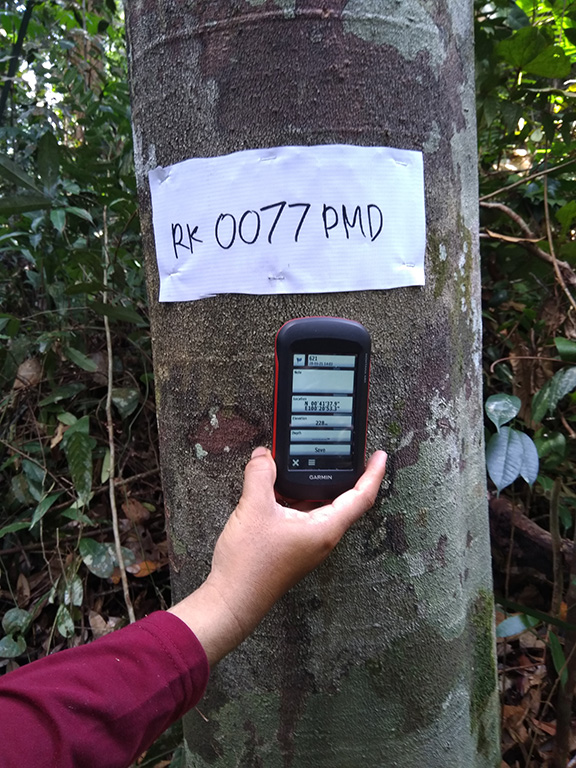 RK 0077 PMD
621
Note
Location
N 00°41'27.9"
E100°20'53.3"
Elevation
228m
Depth
Save
GARMIN